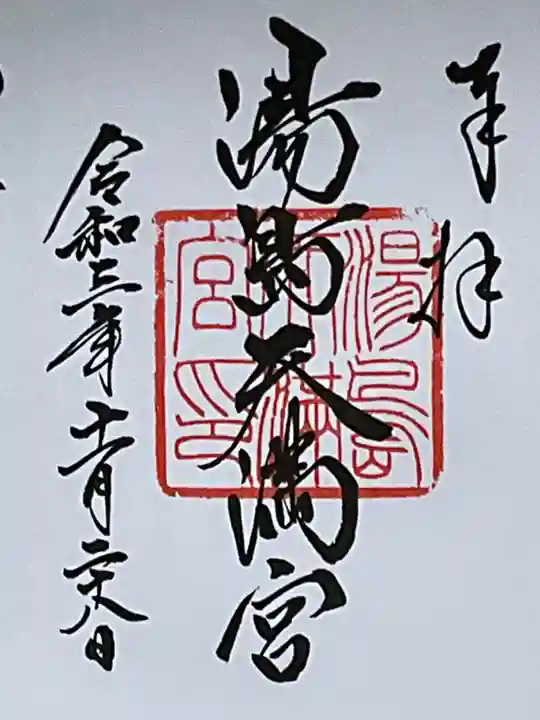 奉拝
湯島天満宮
湯島
天満
宮印
令和三年十一月二十八日